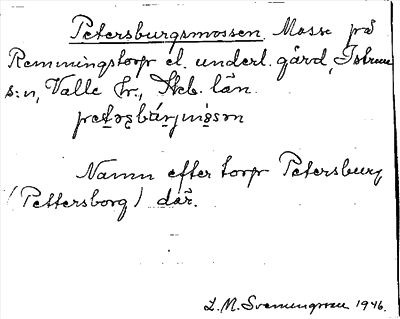 Petersburgsmossen. Mosse på
Remmingstorp el. underl. gård, Istrum
s:n, Valle hr., Skb. län.
Namn efter torp Petersburg
(Pettersborg) där.
L. M. Svenungsson 1946.